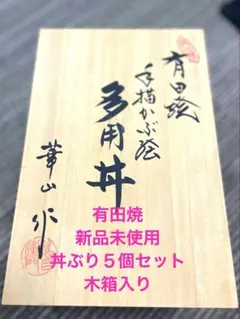 有田焼
手描かぶ絵
多用丼
華山作
有田焼
新品未使用
丼ぶり５個セット
木箱入り